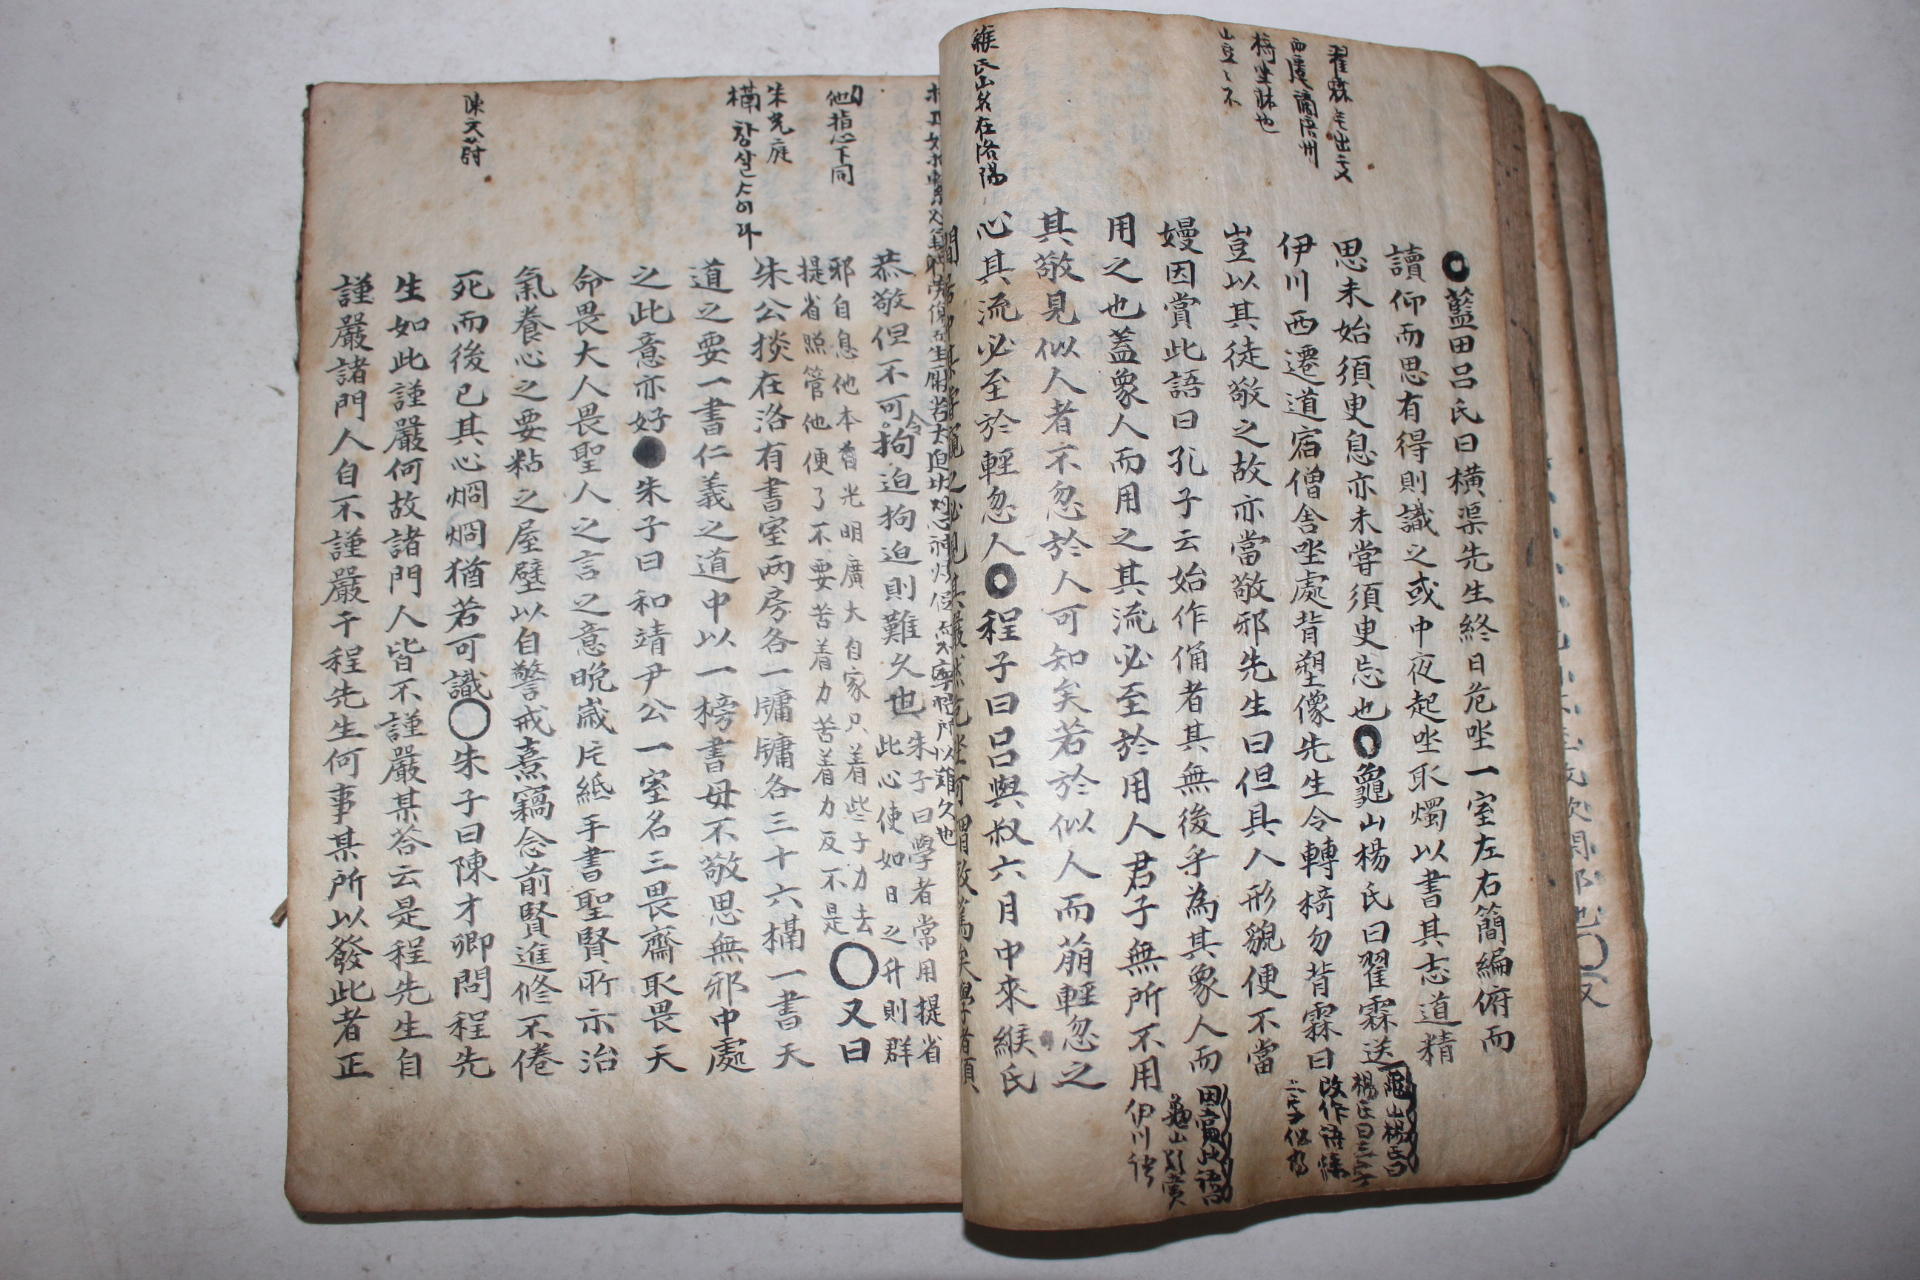 翟霖
西遷謫涪州
椅坐牀也
緱氏山名在洛陽
藍田呂氏曰橫渠先生終日危坐一室左右簡編俯而
讀仰而思有得則識之或中夜起坐取燭以書其志道精
思未始須臾息亦未嘗須臾忘也龜山楊氏曰翟霖送
伊川西遷道宿僧舍坐處背塑像先生令轉椅勿背霖曰
豈以其徒敬之故亦當敬邪先生曰但具人形貌便不當
嫚因賞此語曰孔子云始作俑者其無後乎為其象人而
用之也蓋象人而用之其流必至於用人君子無所不用
其敬見似人者不忽於人可知矣若於似人而萠輕忽之
心其流必至於輕忽人程子曰呂與叔六月中來緱氏
龜山楊氏曰
楊氏曰三字
改作語錄
因賞此語曰
伊川
他指心下同
朱光庭
槅 창살ㅅ이라
陳文蔚
恭敬但不可令拘迫拘迫則難久也
朱子曰學者常用提省
此心使如日之升則群
邪自息他本自光明廣大自家只着些子力去
提省照管他便了不要苦着力苦着力反不是
又曰
朱公掞在洛有書室两房各一牖牖各三十六槅一書天
道之要一書仁義之道中以一榜書毋不敬思無邪中處
之此意亦好朱子曰和靖尹公一室名三畏齋取畏天
命畏大人畏聖人之言之意晩嵗片紙手書聖賢所示治
氣養心之要粘之屋壁以自警戒熹竊念前賢進修不倦
死而後已其心烱烱猶若可識朱子曰陳才卿問程先
生如此謹嚴何故諸門人皆不謹嚴某答云是程先生自
謹嚴諸門人自不謹嚴干程先生何事某所以發此者正